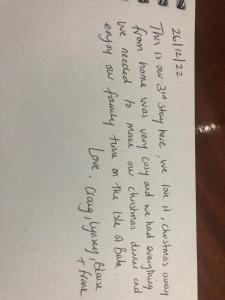 26/12/22.
This is our 3rd stay here, we love it, christmas away
from home was very cosy and we had everything
we needed to make our christmas dinner and
enjoy our family time on the Isle of Bute.
Love, Craig, Lynsey, Blaire
+